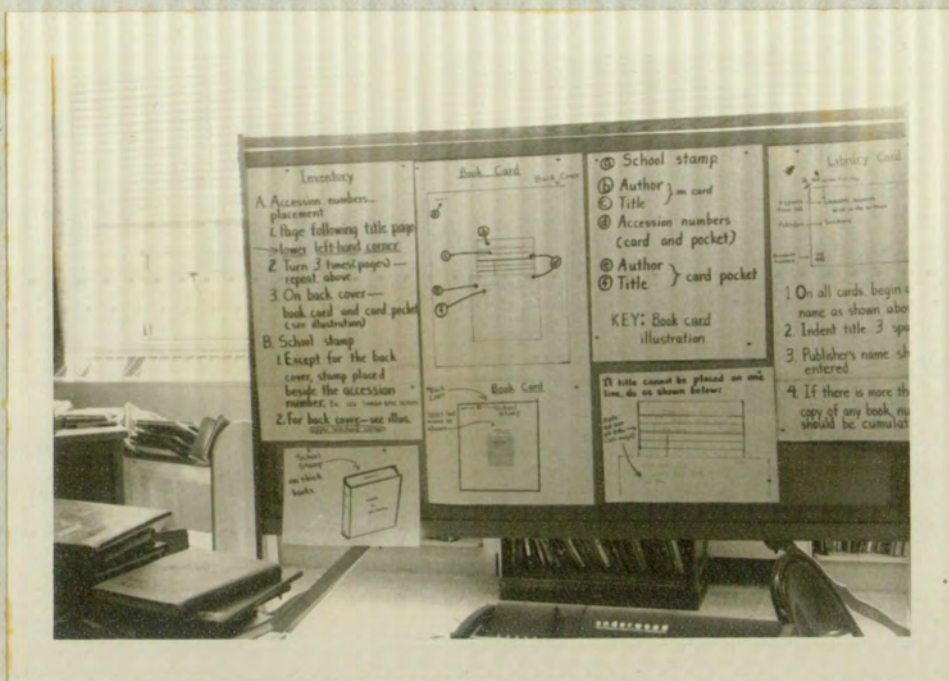 Inventory
A. Accession numbers—
placement
1. Page following title page
lower left-hand corner
2. Turn 3 times (pages)—
repeat above.
3. On back cover—
book card and card pocket
(see illustration)
B. School stamp
1. Except for the back
cover, stamp placed
beside the accession
number.
2. For back cover—see illus.
School
Stamp
on thick
books
Book Card
Back Cover
a
b
c
d
e
f
Book Card
School
Stamp
a School stamp
b Author } on card
c Title
d Accession numbers
(card and pocket)
e Author } card pocket
f Title
KEY: Book card
illustration
If title cannot be placed on one
line, do as shown below:
Library Card
1. On all cards, begin
name as shown abo
2. Indent title 3 spa
3. Publisher's name sh
entered
4. If there is more th
copy of any book, nu
should be cumulat
underwood